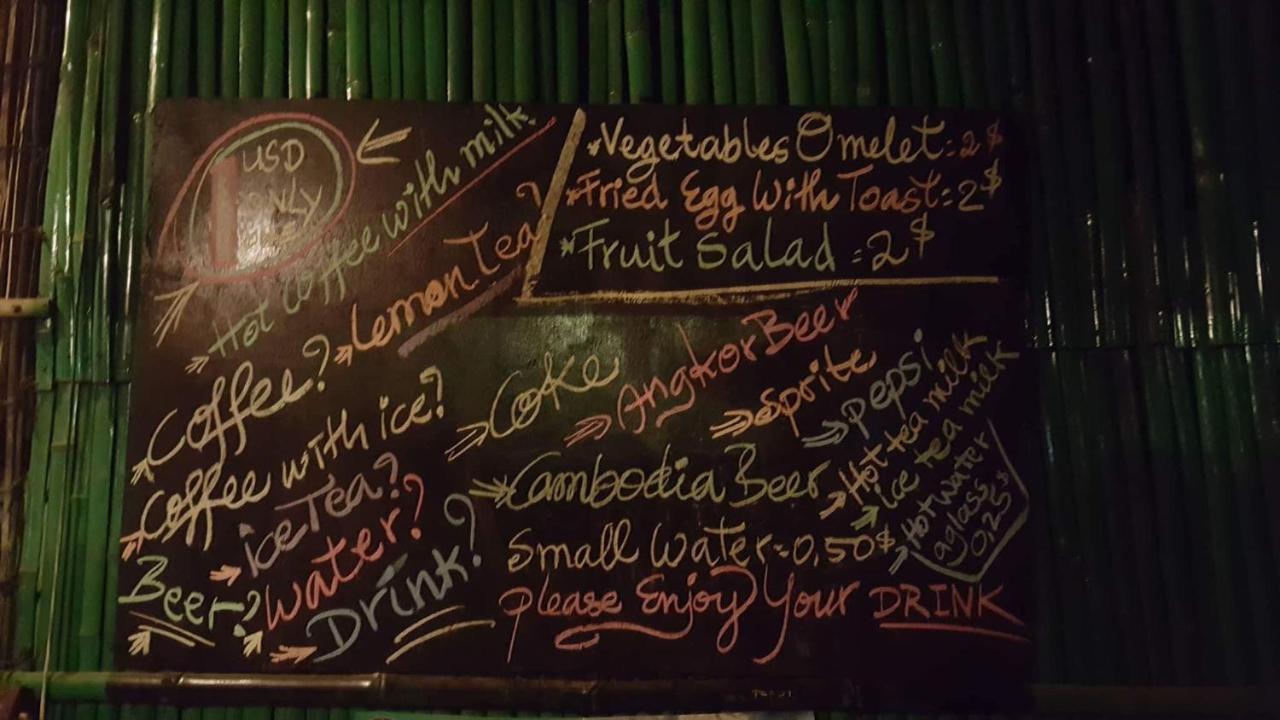 1 USD only
Hot coffee with milk?
Lemon Tea?
Coffee?
Coffee with ice?
ice Tea?
Beer?
Water?
Drink?
*Vegetables Omelet: 2$
*Fried Egg With Toast: 2$
*Fruit Salad = 2$
Coke
Angkor Beer
Sprite
pepsi
Cambodia Beer
Hot tea milk
ice tea milk
Hot water
aglass
0,25$
Small Water = 0,50$
please Enjoy Your DRINK